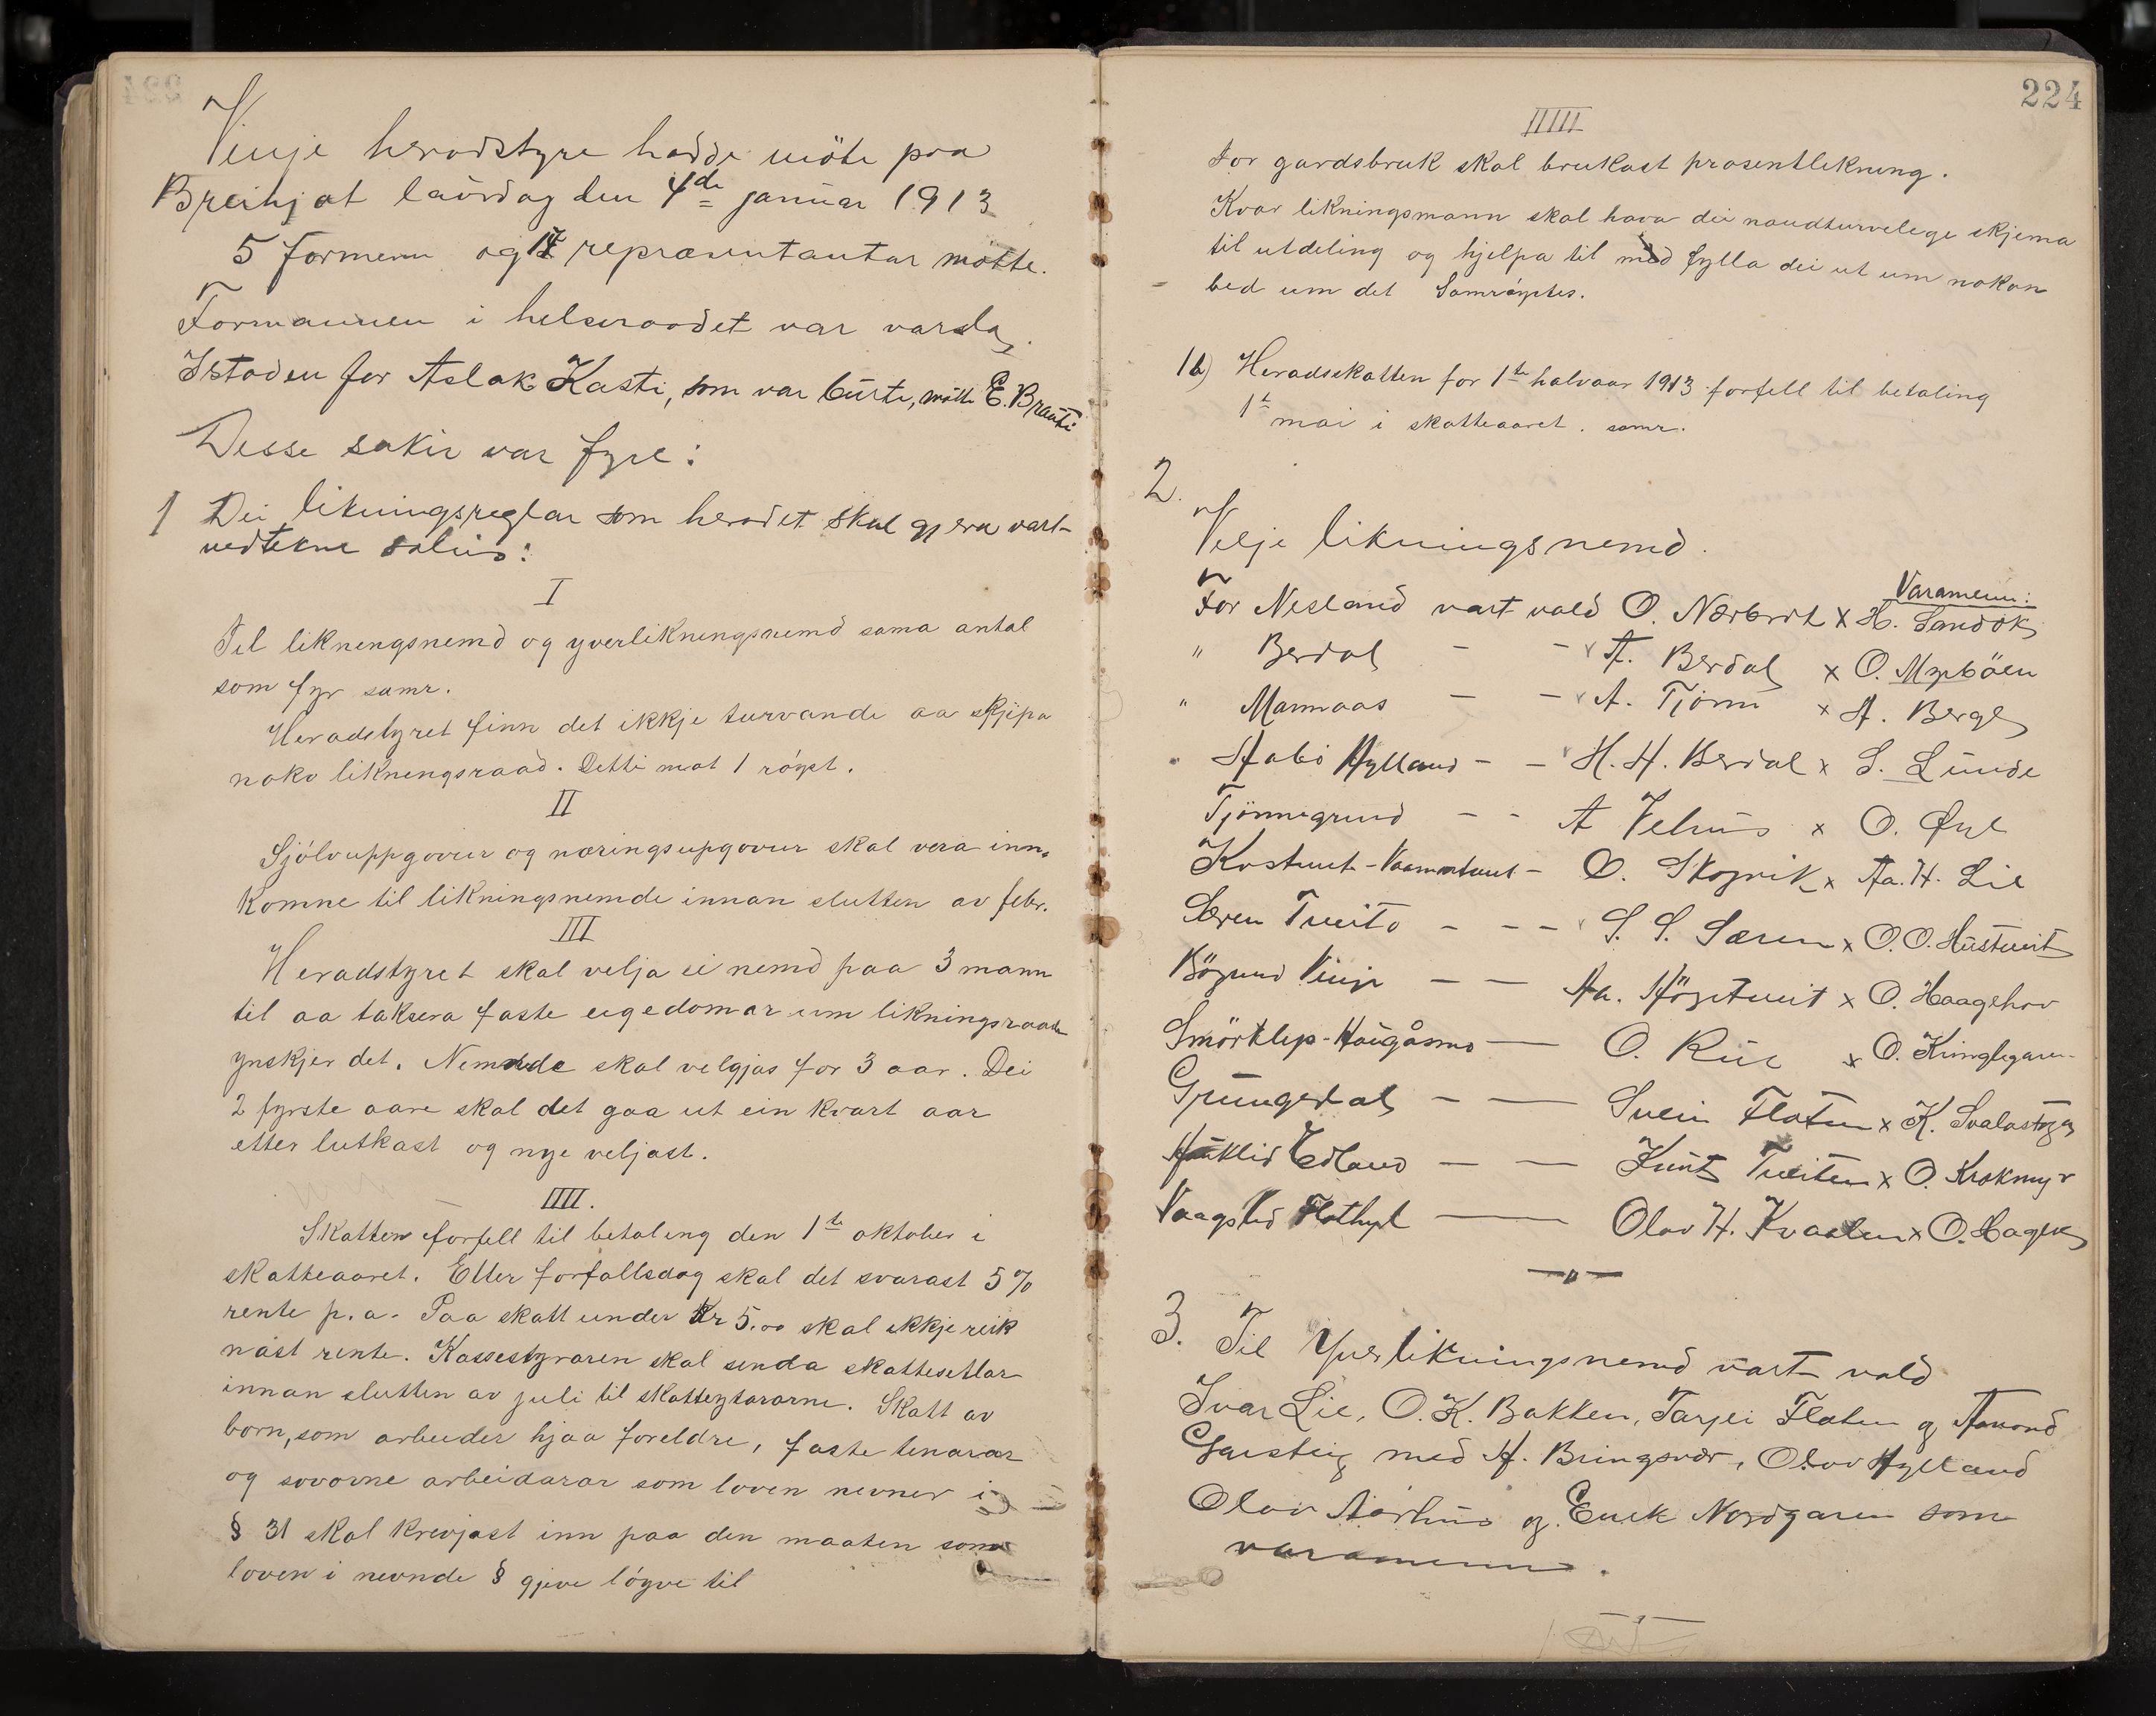 Vinje heradstyre hadde möte paa
Breihjat laurdag den 4de januar 1913
5 formenn og 17 representantar møtte.
Formannen i helseraadet var varsla.
Istaden for Aslak Kasti, som var burte, møtte E. Brauti
Desse sakir var fyre:
1 Dei likningsreglar som heradet skal gjera vart
vedtekne soleis:
I
Til likningsnemd og yverlikningsnemd sama antal
som fyr samr.
Heradstyret finn det ikkje turvande aa skjipa
noko likningsraad. Detti mot 1 røyst.
II
Sjölvuppgovur og næringsupgovur skal vera inn-
komne til likningsnemde innan slutten av febr.
III
Heradstyret skal velja ei nemd paa 3 mann
til aa taksera faste eigedomar um likningsraade
ynskjer det. Nemnde skal velgjas for 3 aar. Dei
2 fyrste aare skal det gaa ut ein kvart aar
etter lutkast og nye veljast.
IIII.
Skatten forfell til betaling den 1te oktober i
skatteaaret. Etter forfallsdag skal det svarast 5%
rente p. a. Paa skatt under Kr 5.00 skal ikkje reik
nast rente. Kassestyraren skal senda skattesetlar
innan slutten av juli til skatteytararne. Skatt av
born, som arbeider hjaa foreldre, faste tenarar
og sovorne arbeidarar som loven nevner i
§ 31 skal krevjast inn paa den maaten som
loven i nevnde § gjeve løyve til
224
IIIII
For gardsbruk skal brukast prosentlikning.
Kvar likningsmann skal hava dei naudturvelege skjema
til utdeling og hjelpa til med fylla dei ut um nokon
bed um det Samrøystes.
1b) Heradsskatten for 1te halvaar 1913 forfell til betaling
1te mai i skatteaaret. samr.
2.
Velje likningsnemd.
Varamenn:
For Nesland vart vald O. Nærbrot x H. Sandok
" Berdal - - A. Berdal x O. Myrböen
" Mannaas - - A. Tjönn x A. Berge
" Stabö Hylland - - H. H. Berdal x S. Lunde
Tjönnegrund - - A Velhus x O. Øye
Kostveit-Vaamartveit - O. Skogvik x Aa. H. Lie
Særen Tveito - - - S. S. Særen x O. O. Hustveit
Bögrend Vinje - - Aa. Högetveit x O. Haagehov
Smörklep-Haugåsmo — O. Rue x O.
Grungedal - — Svein Flaten x K. Svalastoga
Hauklid Edland - — Knut Tveiten x O. Krokmyr
Vaagslid Flothyl — Olav H. Kvaalen x O. Hagen
— " —
3. Til Yverlikningsnemd vart vald
Ivar Lie, O. K. Bakken, Tarjei Flaten og Aamond
Garsteig med A. Bringsvær, Olav Hylland
Olav Aarhus og Eirik Nordgaren som
varamenn.